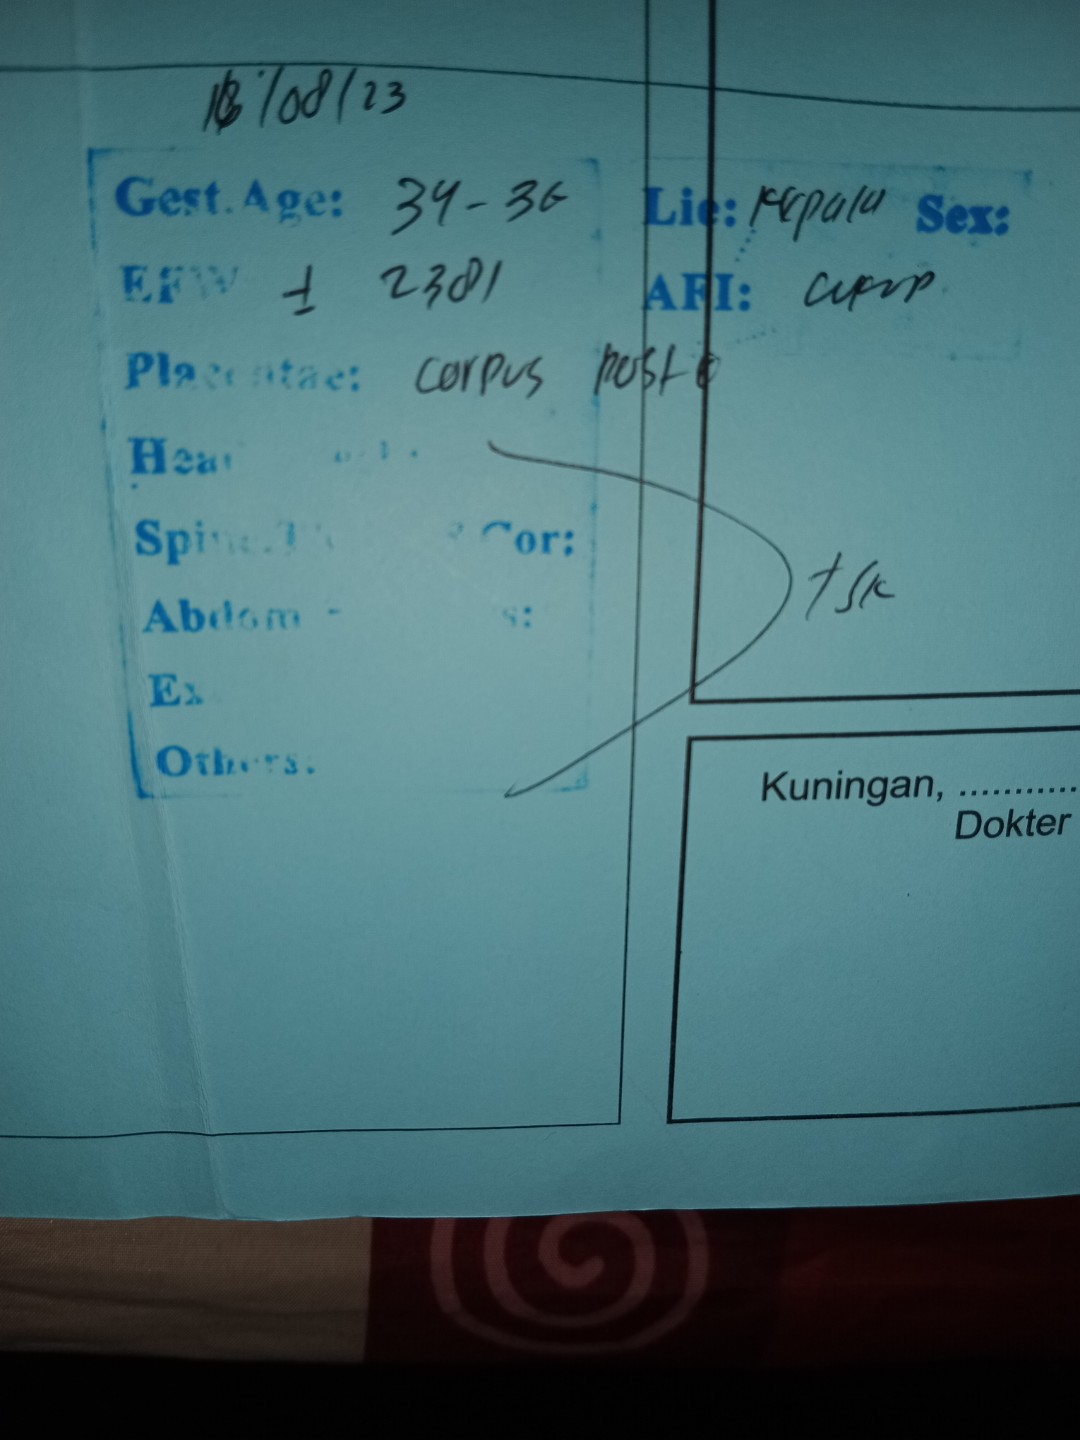 /08/23
Gest. Age: 34-36
Lie: Kepala Sex:
EFW ± 2381
AFI: cukup
Placentae: corpus post
Spine Cor:
Abdom
Ex
Others:
Kuningan, ............
Dokter